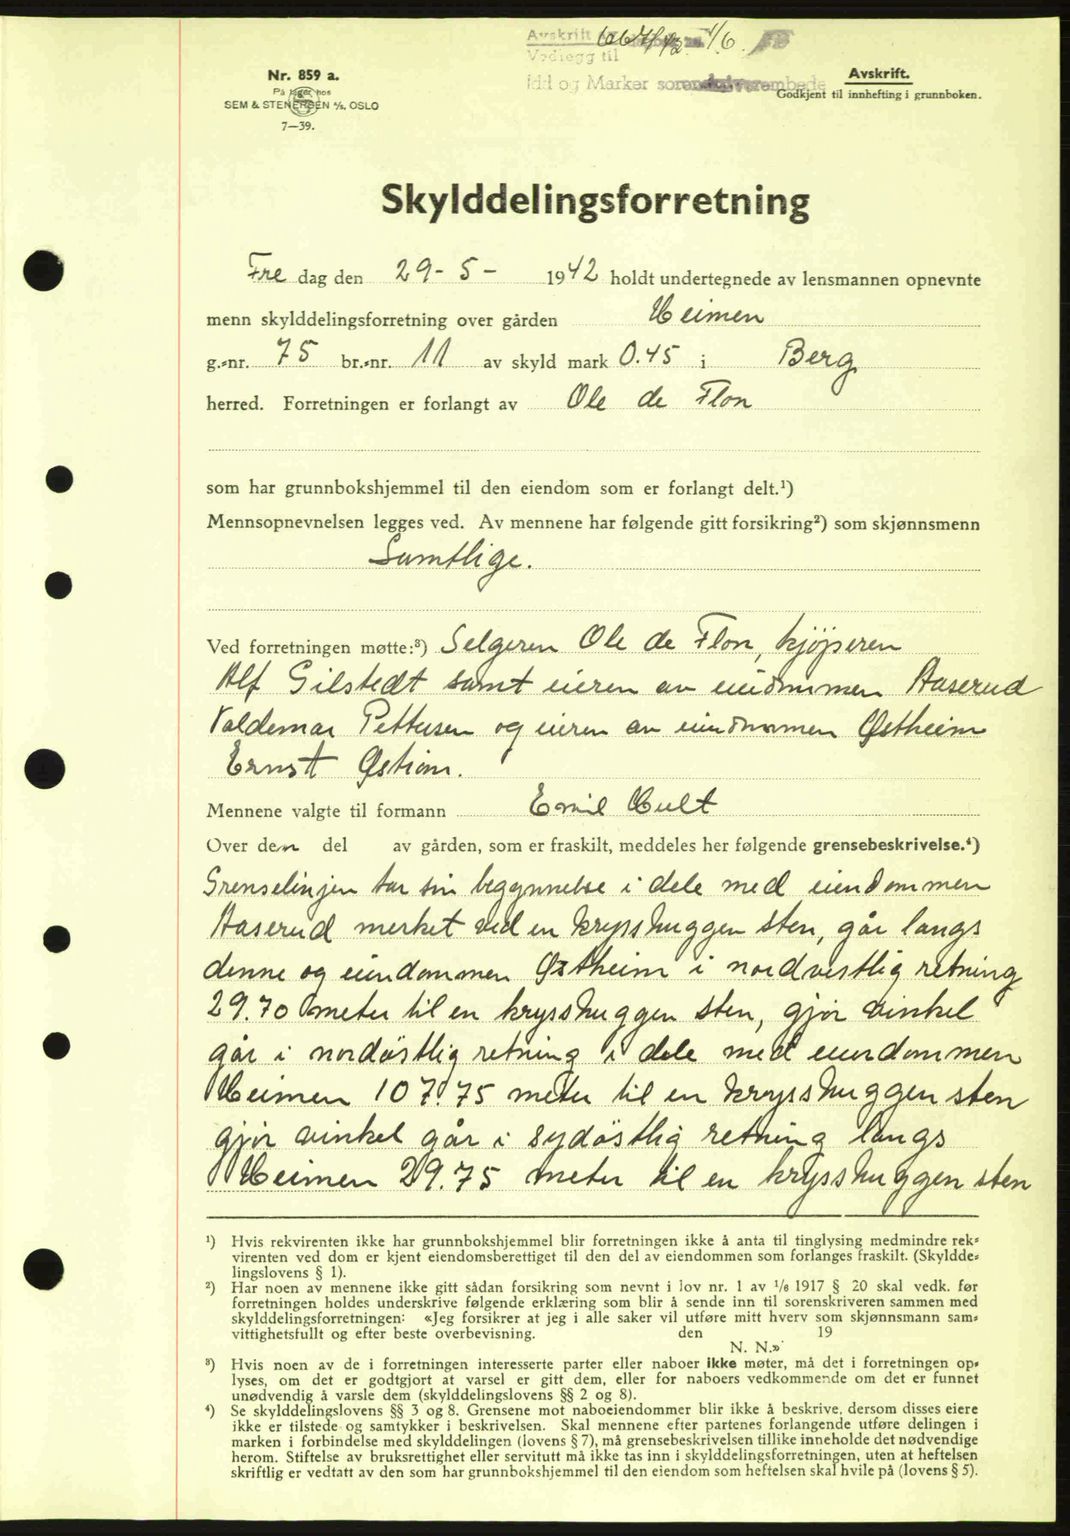 Avskrift 667/42 1/6
Vedlegg til
Idd og Marker sorenskriverembede
Nr. 859 a.
På lager hos
SEM & STENERSEN A/S, OSLO
7—39.
Avskrift.
Godkjent til innhefting i grunnboken.
Skylddelingsforretning
Fre dag den 29 - 5 - 1942 holdt undertegnede av lensmannen opnevnte
menn skylddelingsforretning over gården Heimen
g.-nr. 75 br.-nr. 11 av skyld mark 0.45 i Berg
herred. Forretningen er forlangt av Ole de Flon
som har grunnbokshjemmel til den eiendom som er forlangt delt.¹)
Mennsopnevnelsen legges ved. Av mennene har følgende gitt forsikring²) som skjønnsmenn
Samtlige.
Ved forretningen møtte:³) Selgeren Ole de Flon, kjöperen
Alf Gilstedt samt eieren av eiendommen Aaserud
Valdemar Pettersen og eieren av eiendommen Østheim
Ernst Østiom.
Mennene valgte til formann Emil Hult
Over den del av gården, som er fraskilt, meddeles her følgende grensebeskrivelse.⁴)
Grenselinjen tar sin begynnelse i dele med eiendommen
Aaserud merket ved en krysshuggen sten, går langs
denne og eiendommen Østheim i nordvestlig retning
29.70 meter til en krysshuggen sten, gjör vinkel
går i nordöstlig retning i dele med eiendommen
Heimen 107.75 meter til en krysshuggen sten
gjör vinkel går i sydöstlig retning langs
Heimen 29.75 meter til en krysshuggen sten
¹) Hvis rekvirenten ikke har grunnbokshjemmel blir forretningen ikke å anta til tinglysing medmindre rek-
virenten ved dom er kjent eiendomsberettiget til den del av eiendommen som forlanges fraskilt. (Skyldde-
lingslovens § 1).
²) Har noen av mennene ikke gitt sådan forsikring som nevnt i lov nr. 1 av 1/6 1917 § 20 skal vedk. før
forretningen holdes underskrive følgende erklæring som blir å sende inn til sorenskriveren sammen med
skylddelingsforretningen: «Jeg forsikrer at jeg i alle saker vil utføre mitt hverv som skjønnsmann sam-
vittighetsfullt og efter beste overbevisning. den 19
N. N.»
³) Hvis noen av de i forretningen interesserte parter eller naboer ikke møter, må det i forretningen op-
lyses, om det er godtgjort at varsel er gitt dem, eller for naboers vedkommende om det er funnet
unødvendig å varsle dem (skylddelingslovens §§ 2 og 8).
⁴) Se skylddelingslovens §§ 3 og 8. Grensene mot naboeiendommer blir ikke å beskrive, dersom disses eiere
ikke er tilstede og samtykker i beskrivelsen. Skal mennene efter partenes forlangende utføre delingen i
marken i forbindelse med skylddelingen (lovens § 7), må grensebeskrivelsen tillike inneholde det nødvendige
herom. Stiftelse av bruksrettighet eller servitutt må ikke tas inn i skylddelingsforretningen, uten at heftelsen
skriftlig er vedtatt av den som har grunnbokshjemmel til den eiendom som heftelsen skal hvile på (lovens § 5).